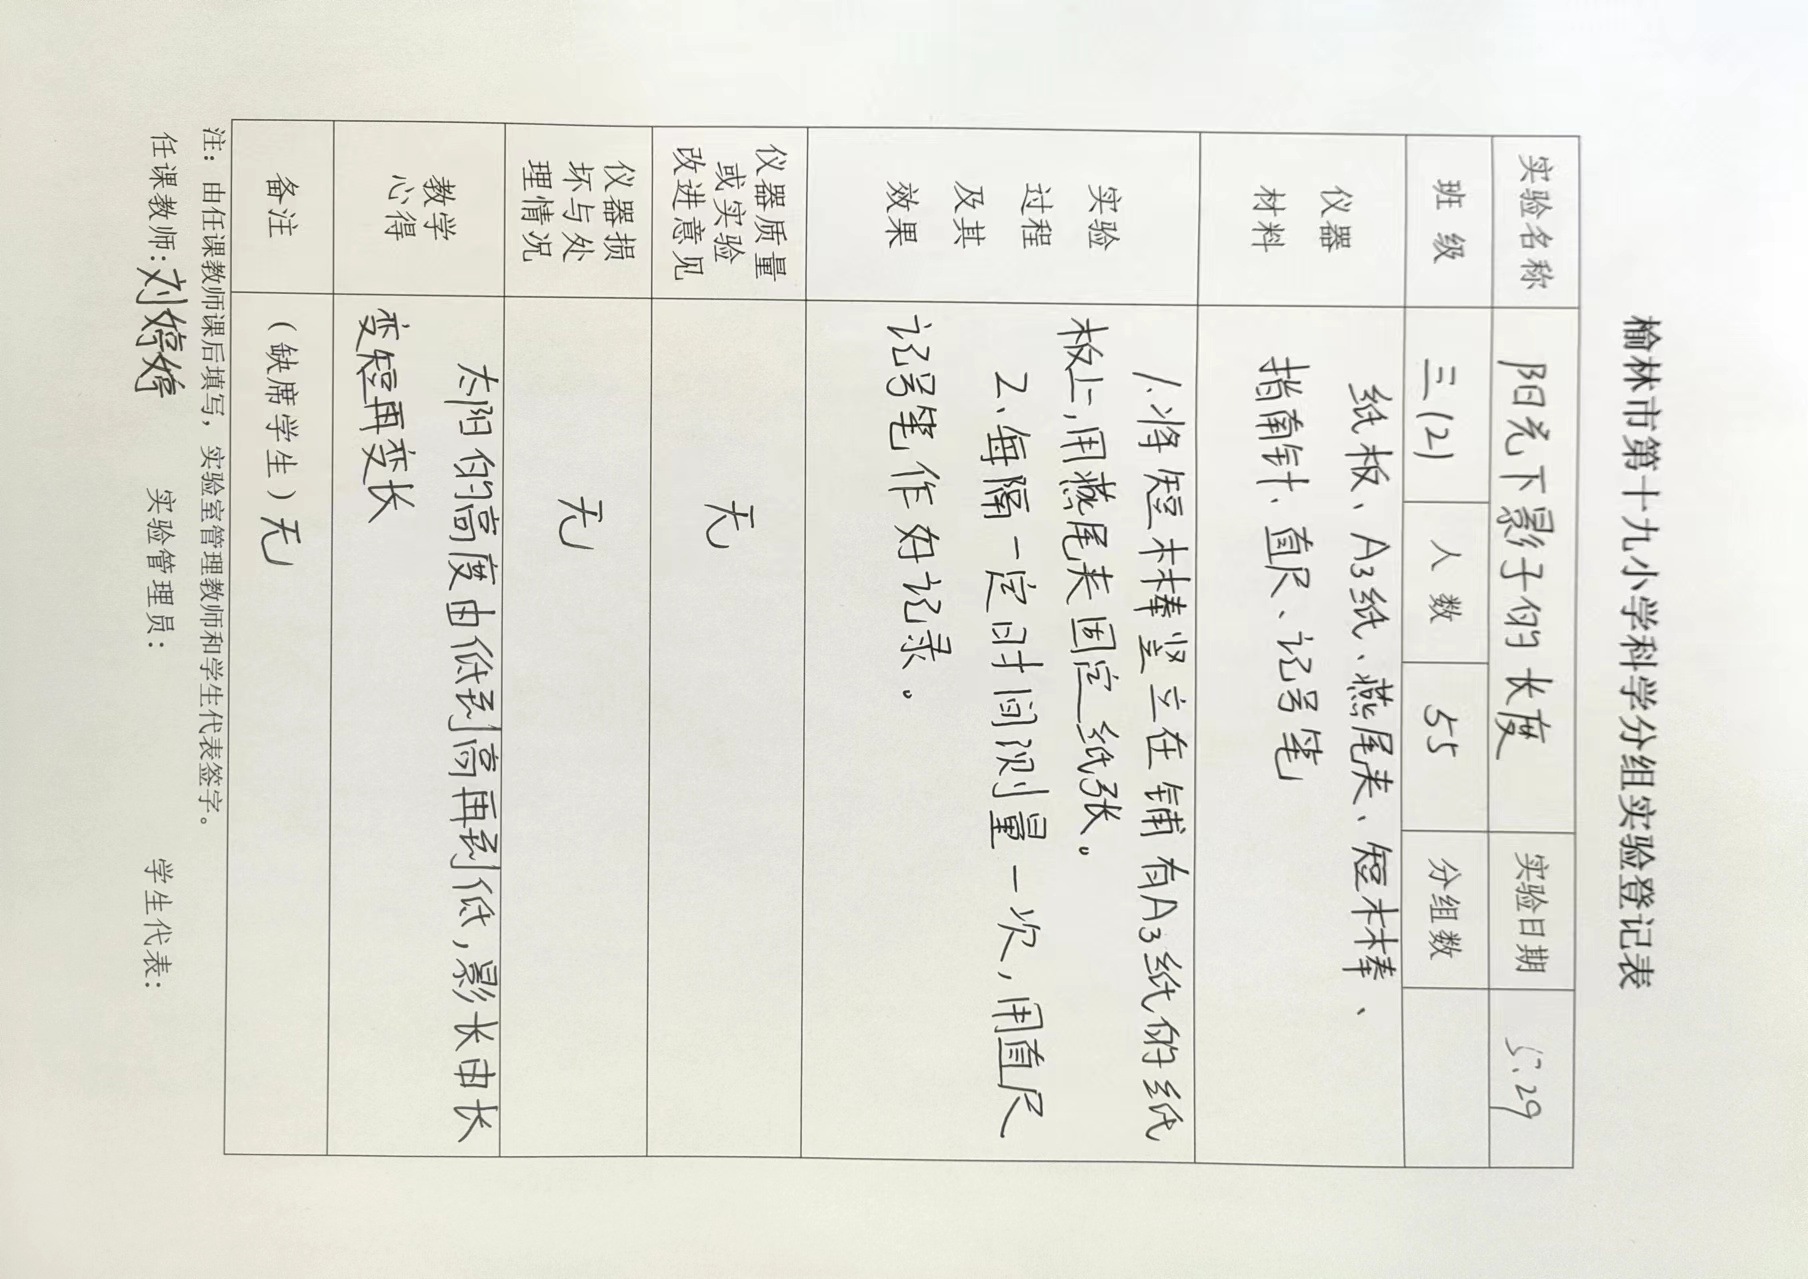 榆林市第十九小学科学分组实验登记表
实验名称 阳光下影子的长度 实验日期 5.29
班 级 三(2) 人 数 55 分组数
仪器
材料
纸板、A3纸、燕尾夹、短木棒、
指南针、直尺、记号笔
实验
过程
及其
效果
1.将短木棒竖立在铺有A3纸的纸
板上,用燕尾夹固定纸张。
2、每隔一定时间测量一次,用直尺
记号笔作好记录。
仪器质量
或实验
改进意见
无
仪器损
坏与处
理情况
无
教学
心得
太阳的高度由低到高再到低,影长由长
变短再变长
备注 (缺席学生)无
注：由任课教师课后填写，实验室管理教师和学生代表签字。
任课教师:刘婷婷 实验管理员： 学生代表：